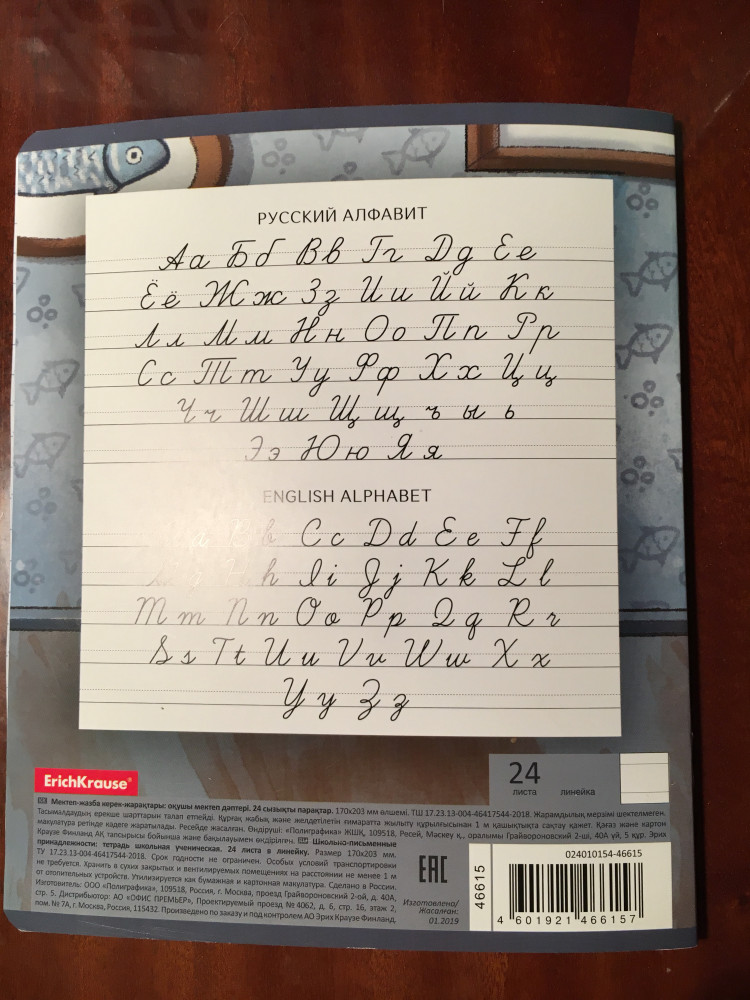 РУССКИЙ АЛФАВИТ
Аа Бб Вв Гг Дд Ее
Ёё Жж Зз Ии Йй Кк
Лл Мм Нн Оо Пп Рр
Сс Тт Уу Фф Хх Цц
Чч Шш Щщ ъ ы ь
Ээ Юю Яя
ENGLISH ALPHABET
a b Cc Dd Ee Ff
h Ii Jj Kk Ll
Mm Nn Oo Pp Qq Rr
Ss Tt Uu Vv Ww Xx
Yy Zz
ErichKrause®
24
листа линейка
KZ Мектеп-жазба керек-жарақтары: оқушы мектеп дәптері. 24 сызықты парақтар. 170х203 мм өлшемі. ТШ 17.23.13-004-46417544-2018. Жарамдылық мерзімі шектелмеген.
Тасымалдаудың ерекше шарттарын талап етпейді. Құрғақ, жабық және желдетілетін ғимаратта жылыту құрылғысынан 1 м қашықтықта сақтау қажет. Қағаз және картон
макулатура ретінде кәдеге жаратылады. Ресейде жасалған. Өндіруші: «Полиграфика» ЖШҚ, 109518, Ресей, Мәскеу қ., өралымы Грайвороновский 2-ші, 40А үй, 5 құр. Эрих
Краузе Финланд АҚ тапсырысы бойынша және бақылауымен өндірілген. Школьно-письменные
принадлежности: тетрадь школьная ученическая. 24 листа в линейку. Размер 170х203 мм.
ТУ 17.23.13-004-46417544-2018. Срок годности не ограничен. Особых условий транспортировки
не требуется. Хранить в сухих закрытых и вентилируемых помещениях на расстоянии не менее 1 м
от отопительных устройств. Утилизируется как бумажная и картонная макулатура. Сделано в России.
Изготовитель: ООО «Полиграфика», 109518, Россия, г. Москва, проезд Грайвороновский 2-ой, д. 40А,
стр. 5. Дистрибьютор: АО «ОФИС ПРЕМЬЕР», Проектируемый проезд № 4062, д. 6, стр. 16, этаж 2,
пом. № 7А, г. Москва, Россия, 115432. Произведено по заказу и под контролем АО Эрих Краузе Финланд.
EAC
Изготовлено/
Жасалған:
01.2019
46615
024010154-46615
4 601921 466157